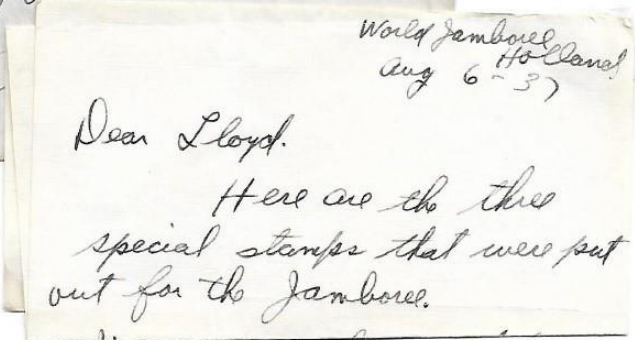 World Jamboree
Holland
Aug 6-37
Dear Lloyd.
Here are the three
special stamps that were put
out for the Jamboree.